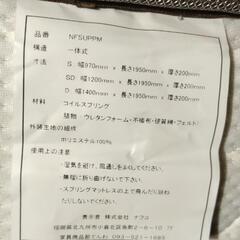 品番 NFSUPPM
構造 一体式
寸法 S 幅970mm×長さ1950mm×厚さ200mm
SD 幅1200mm×長さ1950mm×厚さ200mm
D 幅1400mm×長さ1950mm×厚さ200mm
材料 コイルスプリング
詰物(ウレタンフォーム・不織布・硬質綿・フェルト)
外装生地の組成
ポリエステル100%
使用上の注意
・湿気を避け、風通しをよくしてください。
・無理に折り曲げないで下さい。
・スプリングマットレスの上で飛んだり跳ね
たりしないでください。
表示者 株式会社 ナフコ
福岡県北九州市小倉北区魚町2-6-10
家具商品部でんわ 093-521-